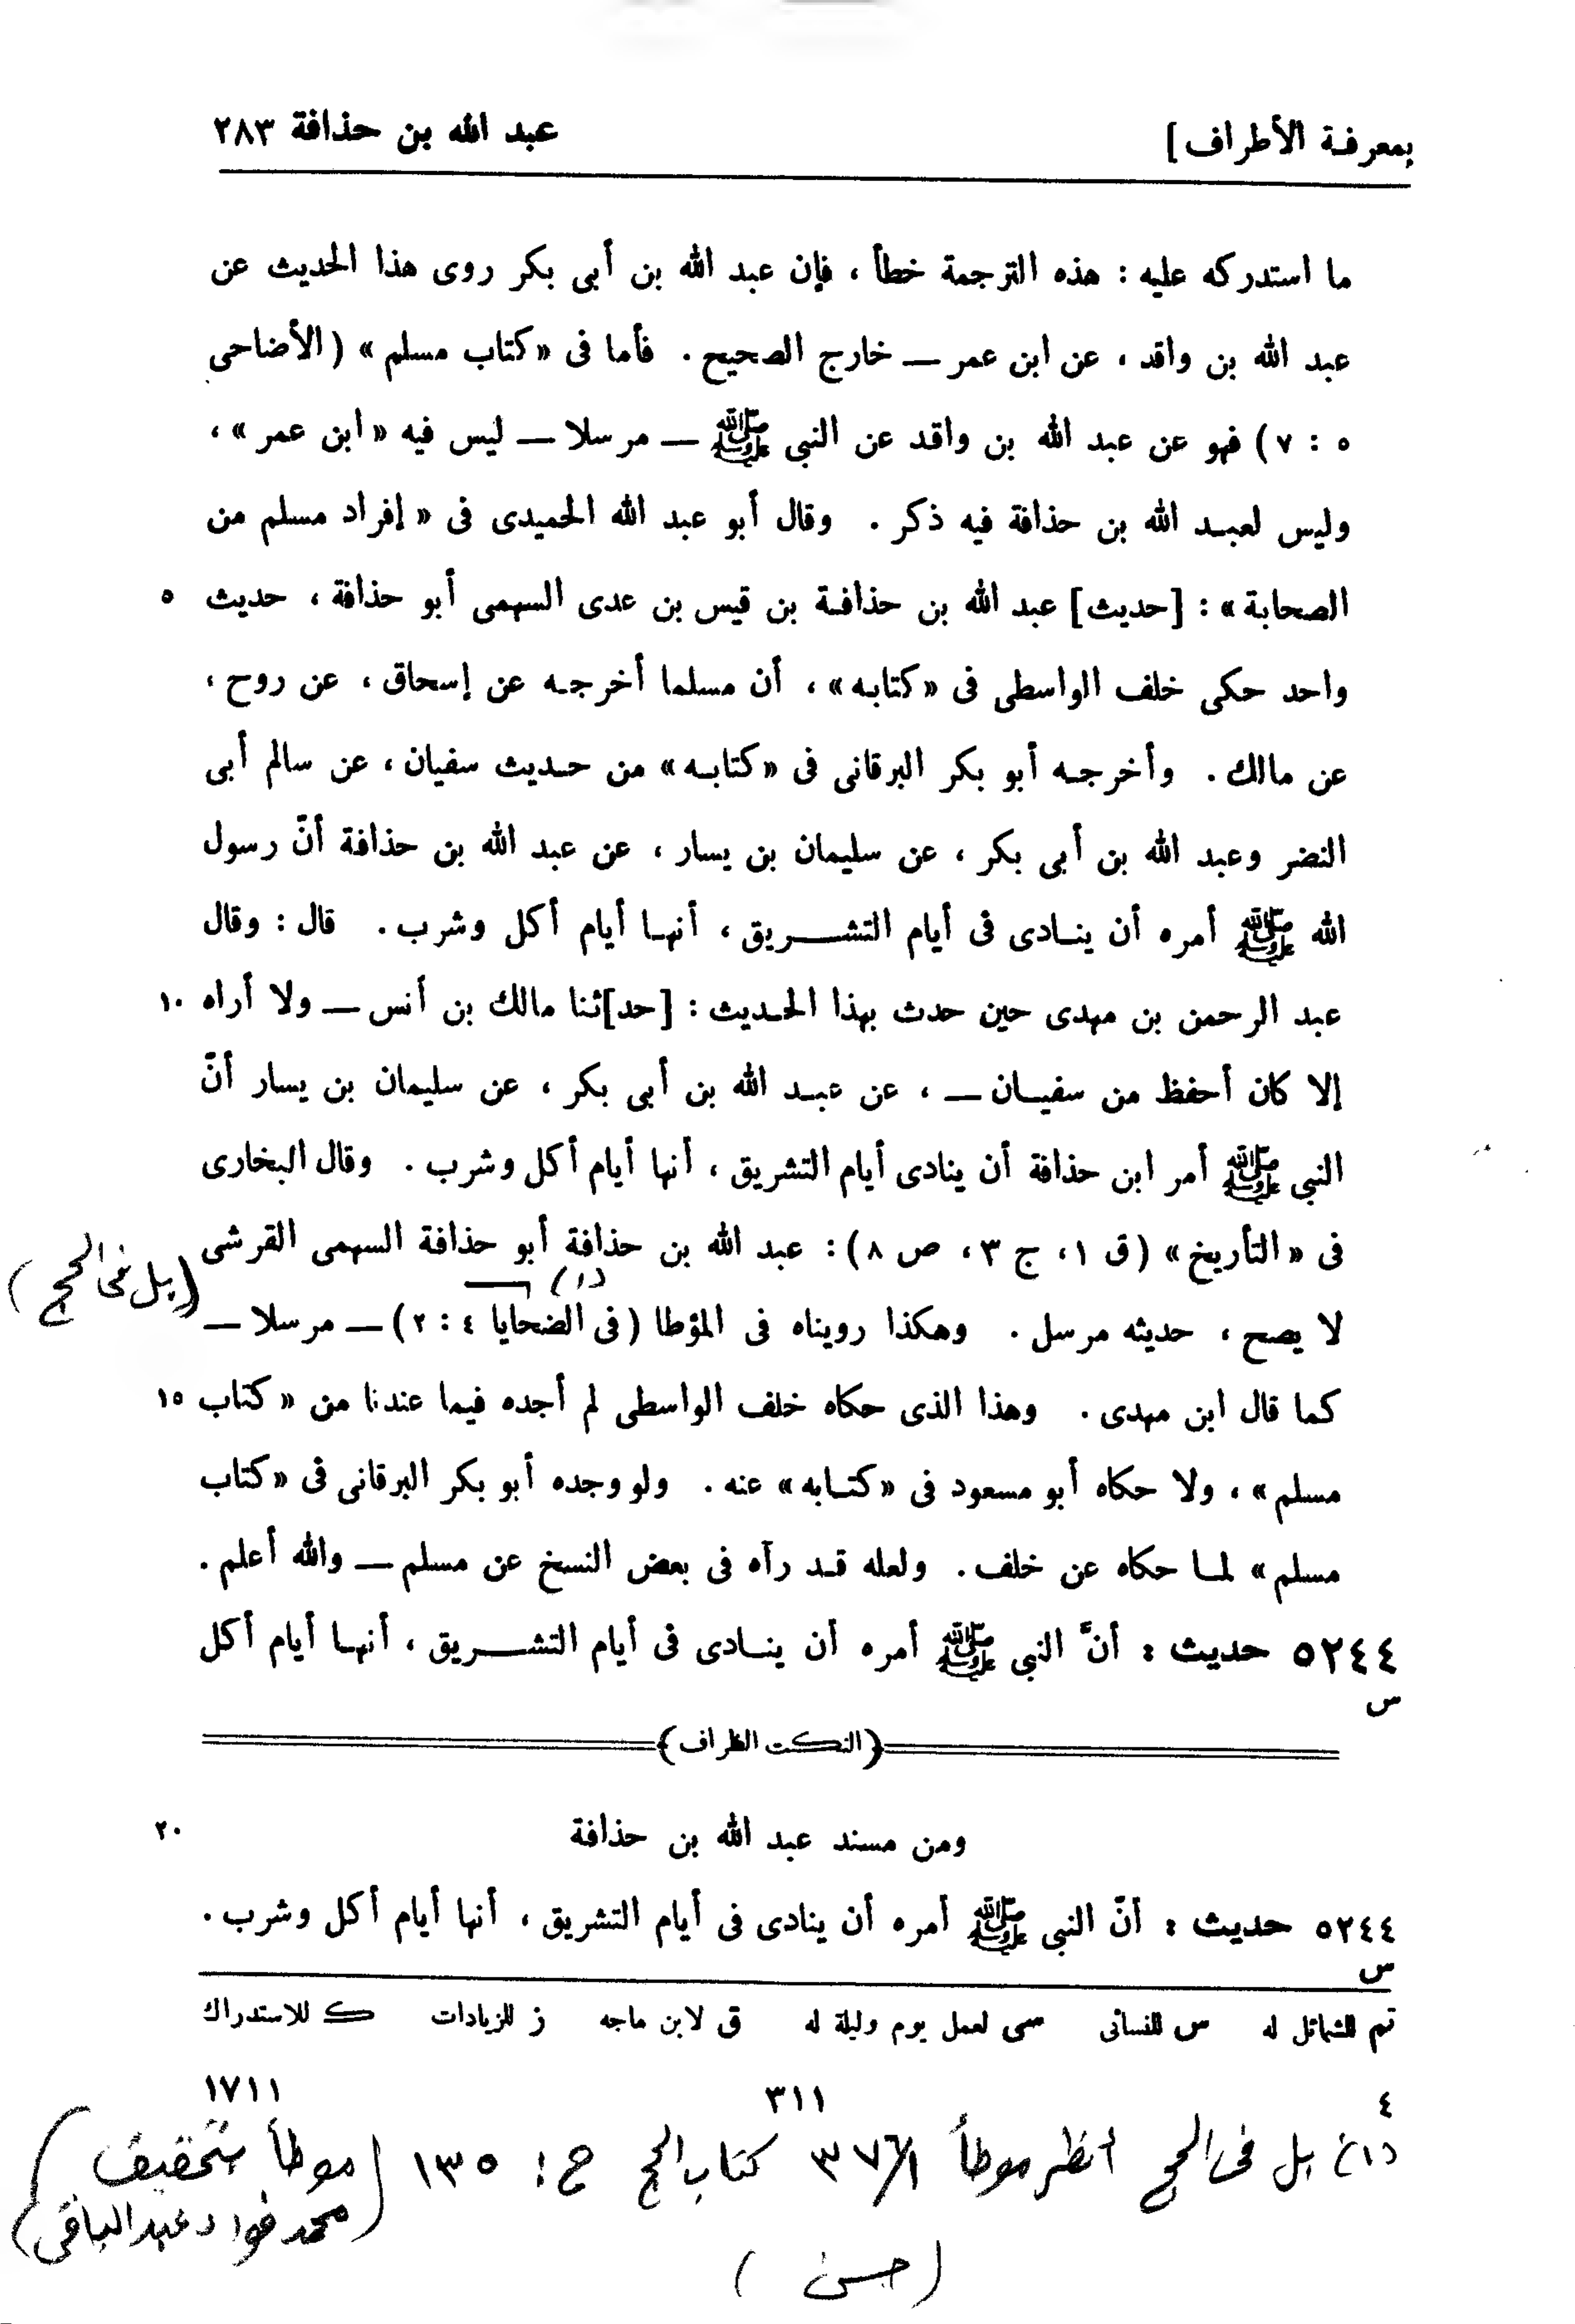 بمعرفة الأطراف] عبد الله بن حذافة ٢٨٣
ما استدركه عليه : هذه الترجمة خطأ ، فإن عبد الله بن أبى بكر روى هذا الحديث عن
عبد الله بن واقد ، عن ابن عمر — خارج الصحيح . فأما فى « كتاب مسلم » (الأضاحى
٥ : ٧) فهو عن عبد الله بن واقد عن النبى ﷺ — مرسلا — ليس فيه « ابن عمر » ،
وليس لعبد الله بن حذافة فيه ذكر . وقال أبو عبد الله الحميدى فى « إفراد مسلم من
الصحابة » : [حديث] عبد الله بن حذافة بن قيس بن عدى السهمى أبو حذافة ، حديث ٥
واحد حكى خلف الواسطى فى « كتابه » ، أن مسلما أخرجه عن إسحاق ، عن روح ،
عن مالك . وأخرجه أبو بكر البرقانى فى « كتابه » من حديث سفيان ، عن سالم أبى
النضر وعبد الله بن أبى بكر ، عن سليمان بن يسار ، عن عبد الله بن حذافة أنّ رسول
الله ﷺ أمره أن ينادى فى أيام التشريق ، أنها أيام أكل وشرب . قال : وقال
عبد الرحمن بن مهدى حين حدث بهذا الحديث : [حد]ثنا مالك بن أنس — ولا أراه ١٠
إلا كان أحفظ من سفيان — ، عن عبد الله بن أبى بكر ، عن سليمان بن يسار أنّ
النبى ﷺ أمر ابن حذافة أن ينادى أيام التشريق ، أنها أيام أكل وشرب . وقال البخارى
فى « التأريخ » (ق ١ ، ج ٣ ، ص ٨) : عبد الله بن حذافة أبو حذافة السهمى القرشى
(بل فى الحج)
(١)
لا يصح ، حديثه مرسل . وهكذا رويناه فى المؤطا (فى الضحايا ٤ : ٢) — مرسلا —
كما قال ابن مهدى . وهذا الذى حكاه خلف الواسطى لم أجده فيما عندنا من « كتاب ١٥
مسلم » ، ولا حكاه أبو مسعود فى « كتابه » عنه . ولو وجده أبو بكر البرقانى فى « كتاب
مسلم » لما حكاه عن خلف . ولعله قد رآه فى بعض النسخ عن مسلم — والله أعلم .
٥٢٤٤ حديث : أنّ النبى ﷺ أمره أن ينادى فى أيام التشريق ، أنها أيام أكل
س
﴿النكت الظراف﴾
ومن مسند عبد الله بن حذافة ٢٠
٥٢٤٤ حديث : أنّ النبى ﷺ أمره أن ينادى فى أيام التشريق ، أنها أيام أكل وشرب .
س
تم للشمائل له س للنسائى سى لعمل يوم وليلة له ق لابن ماجه ز للزيادات ك للاستدراك
٤ ٣١١ ١٧١١
(١) بل فى الحج أنظر موطأ ٣٧٦/١ كتاب الحج ح : ١٣٥ (موطأ بتحقيق
محمد فواد عبد الباقى)
(حسن)